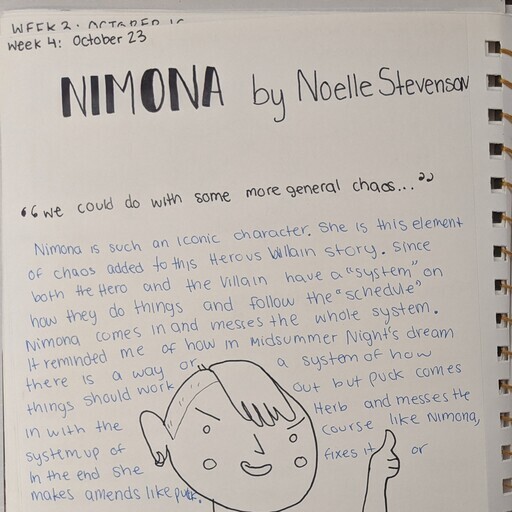 WEEK 2: OCTOBER 16
Week 4: October 23
NIMONA by Noelle Stevenson
"we could do with some more general chaos..."
Nimona is such an iconic character. She is this element
of chaos added to this Hero vs Villain story. Since
both the Hero and the Villain have a "system" on
how they do things and follow the "schedule"
Nimona comes in and messes the whole system.
It reminded me of how in Midsummer Night's dream
there is a way or a system of how
things should work out but Puck comes
in with the Herb and messes the
system up of course like Nimona,
In the end she fixes it or
makes amends like puck.